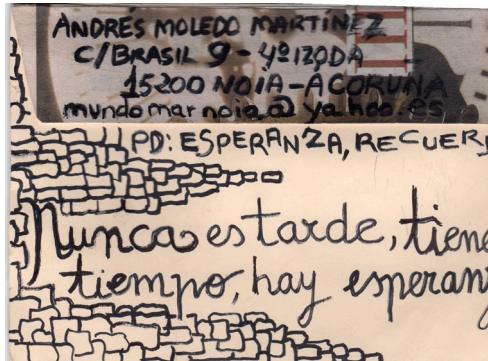 ANDRÉS MOLEDO MARTÍNEZ
C/BRASIL 9 - 4º IZQDA
15200 NOIA - A CORUÑA
mundomarnoia@yahoo.es
PD: ESPERANZA, RECUER
Nunca es tarde, tiene
tiempo, hay esperan